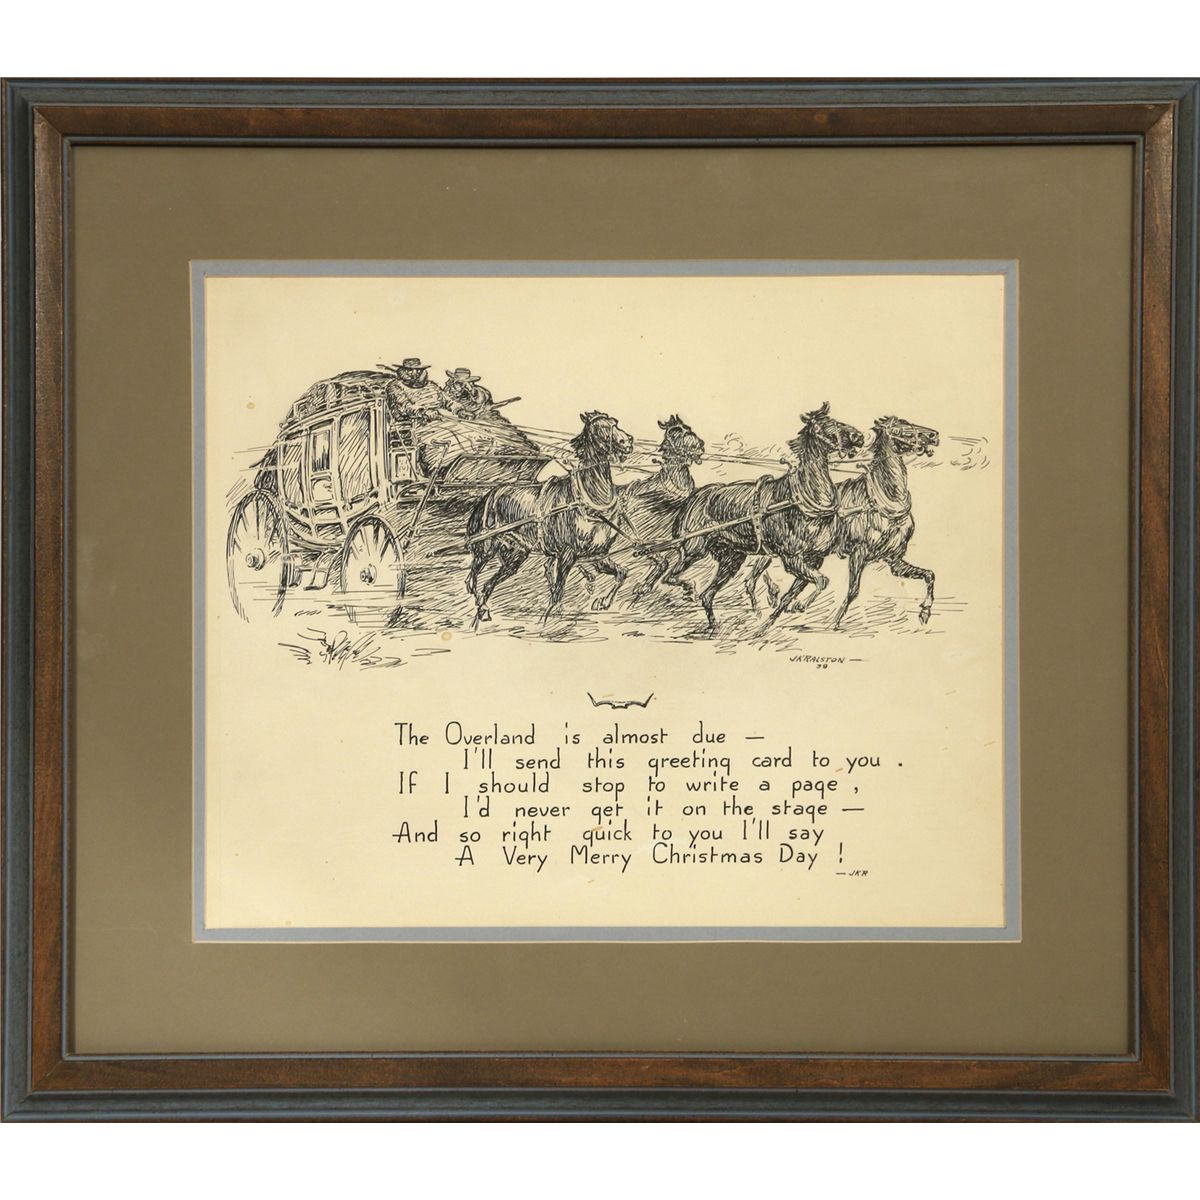 JK RALSTON —
39
The Overland is almost due —
I'll send this greeting card to you .
If I should stop to write a page ,
I'd never get it on the stage —
And so right quick to you I'll say
A Very Merry Christmas Day !
— JKR